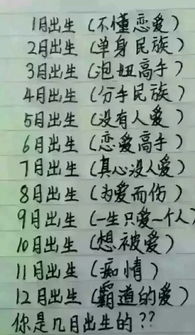 1月出生(不懂恋爱)
2月出生(单身民族)
3月出生(泡妞高手)
4月出生(分手民族)
5月出生(没有人爱)
6月出生(恋爱高手)
7月出生(真心没人爱)
8月出生(为爱而伤)
9月出生(一生只爱一个人)
10月出生(想被爱)
11月出生(痴情)
12月出生(霸道的爱)
你是几月出生的??